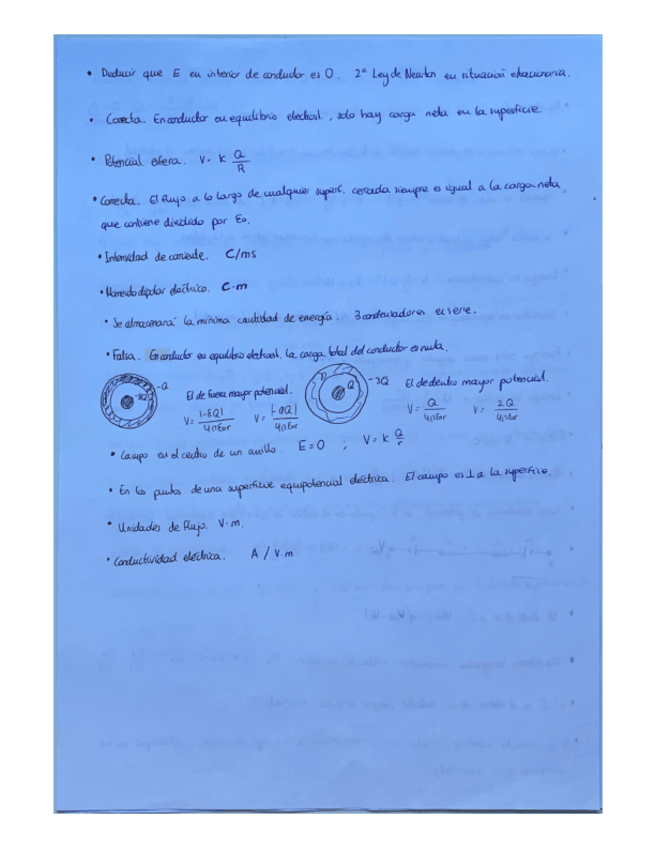 • Deducir que E en interior de conductor es 0. 2ª Ley de Newton en situación estacionaria.
• Correcta. En conductor en equilibrio electrost., solo hay carga neta en la superficie.
• Potencial esfera. V = K Q/R
• Correcta. El flujo a lo largo de cualquier superf. cerrada siempre es igual a la carga neta
que contiene dividido por ε₀.
• Intensidad de corriente. C/ms
• Momento dipolar eléctrico. C·m
• Se almacenará la mínima cantidad de energía. 3 condensadores en serie.
• Falsa. En conductor en equilibrio electrost. la carga total del conductor es nula.
-Q -8Q El de fuera mayor potencial. -3Q Q El de dentro mayor potencial.
V = |-8Q|/4πε₀r V = |-9Q|/4πε₀r V = Q/4πε₀r V = 2Q/4πε₀r
• Campo en el centro de un anillo. E = 0 ; V = K Q/r
• En los puntos de una superficie equipotencial eléctrica. El campo es ⊥ a la superficie.
• Unidades de flujo. V·m.
• Conductividad eléctrica. A / V·m